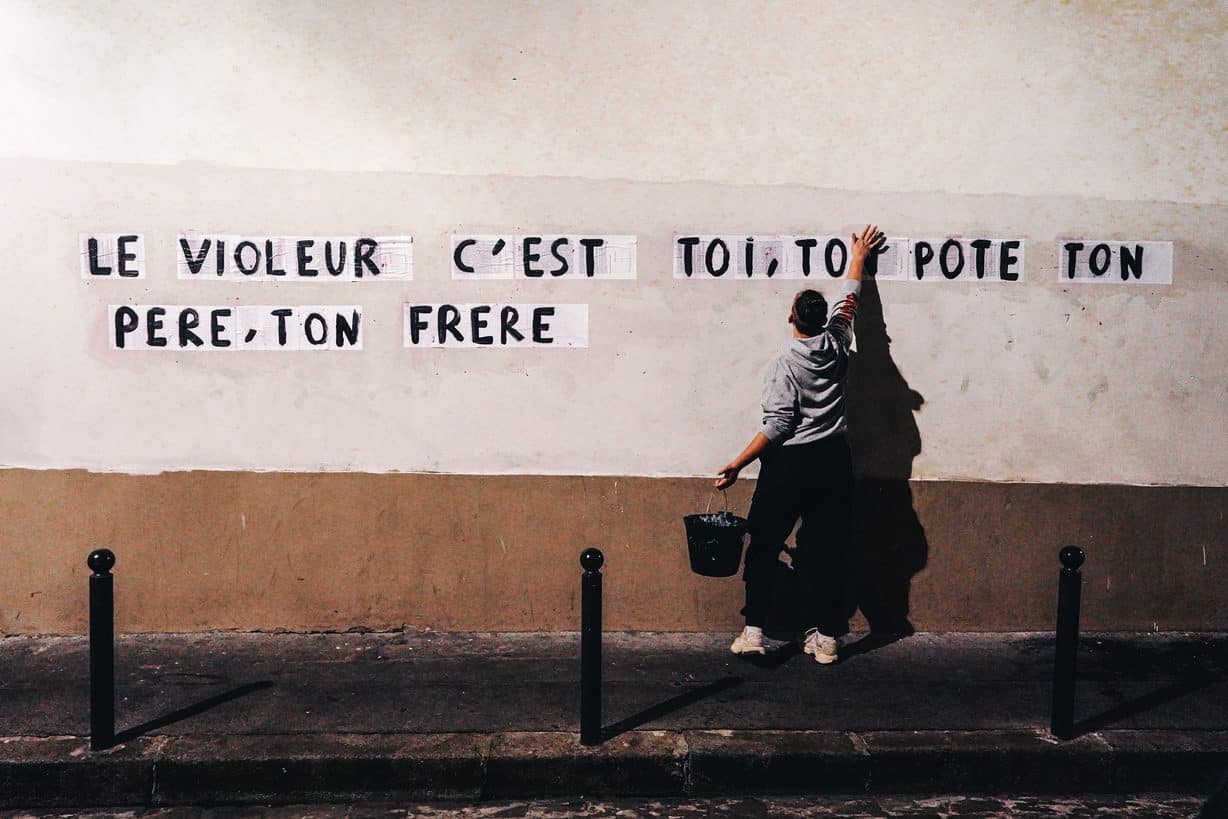 LE VIOLEUR C'EST TOI, TO POTE TON
PERE, TON FRERE